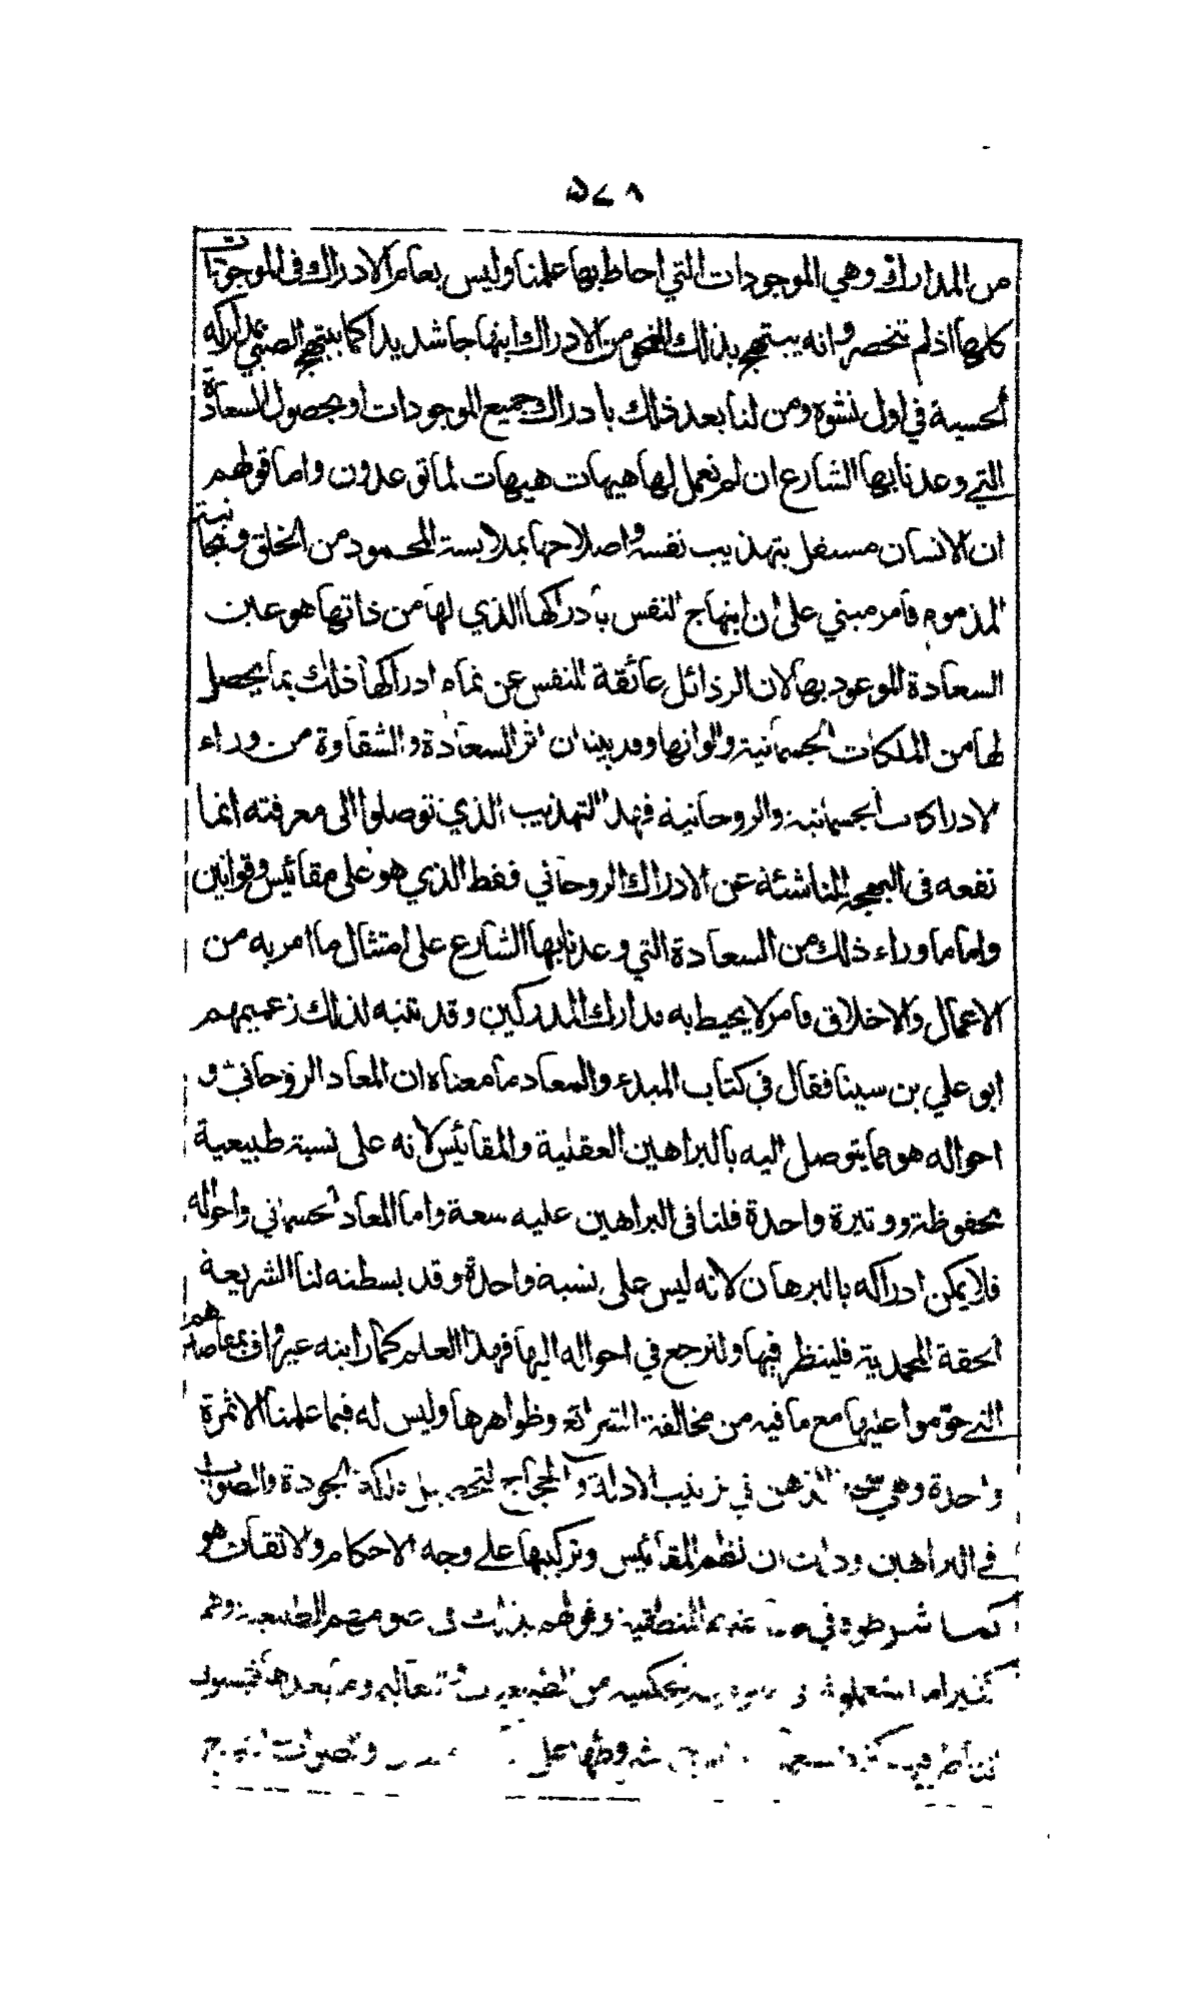 ٥٧٨
من المدارك وهي الموجودات التي احاط بها علمنا وليس بعام الادراك في الموجودات
كلها اذ لم تنحصر وانه يبتهج بذلك النحو من الادراك ابتهاجا شديدا كما يبتهج الصبي بمداركه
الحسية في اول نشوه ومن لنا بعد ذلك بادراك جميع الموجودات او بحصول السعادة
التي وعدنا بها الشارع ان لم نعمل لها هيهات هيهات لما توعدون واما قولهم
ان الانسان مستقل بتهذيب نفسه واصلاحها بملابسة المحمود من الخلق ومجانبة
المذموم فامر مبني على ان ابتهاج النفس بادراكها الذي لها من ذاتها هو عين
السعادة الموعود بها لان الرذائل عائقة للنفس عن تمام ادراكها ذلك بما يحصل
لها من الملكات الجسمانية والوانها وقد بينا ان اثر السعادة والشقاوة من وراء
الادراكات الجسمانية والروحانية فهذا التهذيب الذي توصلوا الى معرفته انما
نفعه في البهجة الناشئة عن الادراك الروحاني فقط الذي هو على مقائيس وقوانين
واما ما وراء ذلك من السعادة التي وعدنا بها الشارع على امتثال ما امر به من
الاعمال والاخلاق فامر لا يحيط به مدارك المدركين وقد تنبه لذلك زعيمهم
ابو علي بن سينا فقال في كتاب المبدء والمعاد ما معناه ان المعاد الروحاني و
احواله هو مما يتوصل اليه بالبراهين العقلية والمقائيس لانه على نسبة طبيعية
محفوظة ووتيرة واحدة فلنا في البراهين عليه سعة واما المعاد الجسماني واحواله
فلا يمكن ادراكه بالبرهان لانه ليس على نسبة واحدة وقد بسطته لنا الشريعة
الحقة المحمدية فلينظر فيها ولنرجع في احواله اليها فهذا العلم كما رايته غير واف بمقاصدهم
التي حوموا عليها مع ما فيه من مخالفة الشرائع وظواهرها وليس له فيما علمنا الا ثمرة
واحدة وهي الذهن في ترتيب الادلة والحجاج لتحصيل ملكة الجودة والصواب
في البراهين وذلك ان نظم المقائيس وتركيبها على وجه الاحكام والاتقان هو
كما شرطوه في المنطقية وقولهم بذلك في علومهم الطبيعية وهم
كثيرا ما يستعملونها في من الطبيعيات والتعاليم وما بعدها فيستولي
الناظر فيها شروطها على